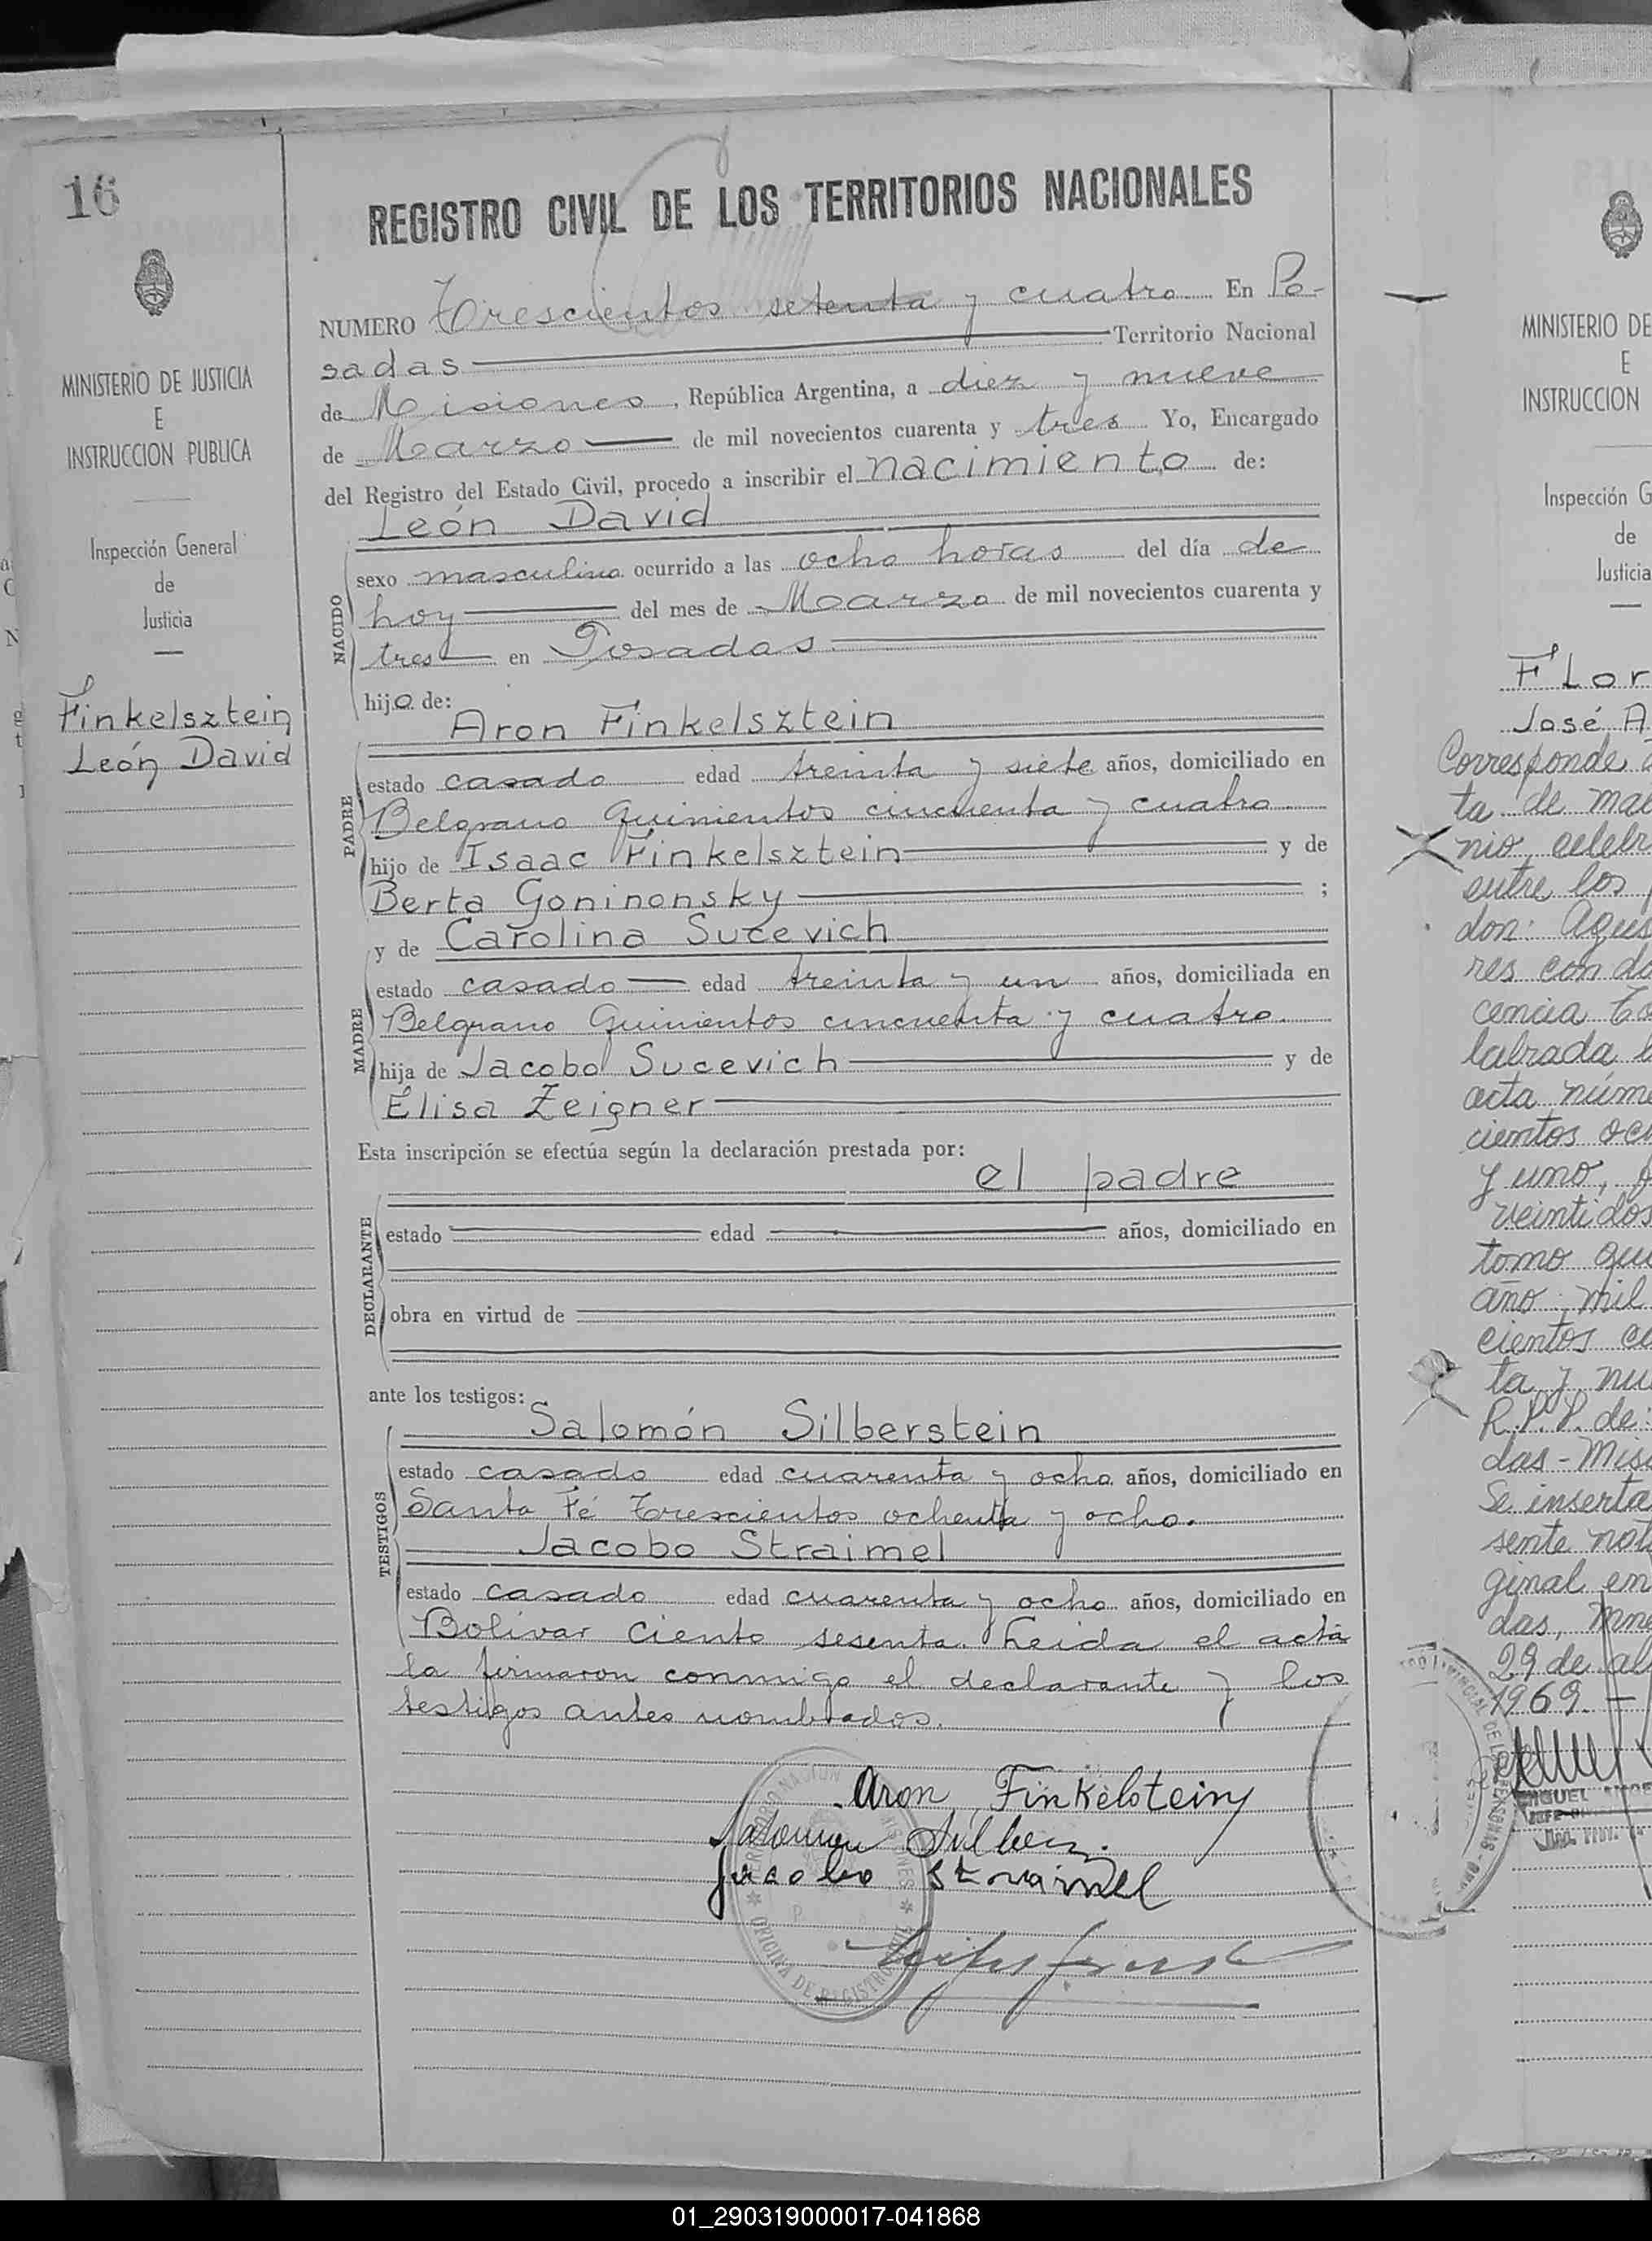 16
MINISTERIO DE JUSTICIA
E
INSTRUCCION PUBLICA
Inspección General
de
Justicia
Finkelsztein
León David
REGISTRO CIVIL DE LOS TERRITORIOS NACIONALES
NUMERO Trescientos setenta y cuatro En Po-
sadas Territorio Nacional
de Misiones, República Argentina, a diez y nueve
de Marzo de mil novecientos cuarenta y tres Yo, Encargado
del Registro del Estado Civil, procedo a inscribir el nacimiento de:
León David
NACIDO
sexo masculino ocurrido a las ocho horas del día de
hoy del mes de Marzo de mil novecientos cuarenta y
tres en Posadas
hijo de:
Aron Finkelsztein
PADRE
estado casado edad treinta y siete años, domiciliado en
Belgrano Quinientos cincuenta y cuatro
hijo de Isaac Finkelsztein y de
Berta Goninonsky ;
y de Carolina Sucevich
MADRE
estado casado edad treinta y un años, domiciliada en
Belgrano Quinientos cincuenta y cuatro.
hija de Jacobo Sucevich y de
Elisa Zeigner
Esta inscripción se efectúa según la declaración prestada por:
el padre
DECLARANTE
estado edad años, domiciliado en
obra en virtud de
ante los testigos:
Salomón Silberstein
TESTIGOS
estado casado edad cuarenta y ocho años, domiciliado en
Santa Fé Trescientos ochenta y ocho.
Jacobo Straimel
estado casado edad cuarenta y ocho años, domiciliado en
Bolívar Ciento sesenta. Leida el acta
la firmaron conmigo el declarante y los
testigos antes nombrados.
Aron Finkelstein
Jacobo Straimel
OFICINA DE REGISTRO CIVIL
MINISTERIO DE
E
INSTRUCCION
Inspección G
de
Justicia
FLor
José A
Corresponde a
ta de mat
nio, celebr
entre los
don: Agus
res con do
cencia To
labrada b
acta núme
cientos oc
y uno, f
veintidos
tomo qu
año mil
cientos cu
ta y nu
R.P.P. de:
das-Misi
Se inserta
sente not
ginal en
das, Mne
29 de ab
1969.-
01_290319000017-041868